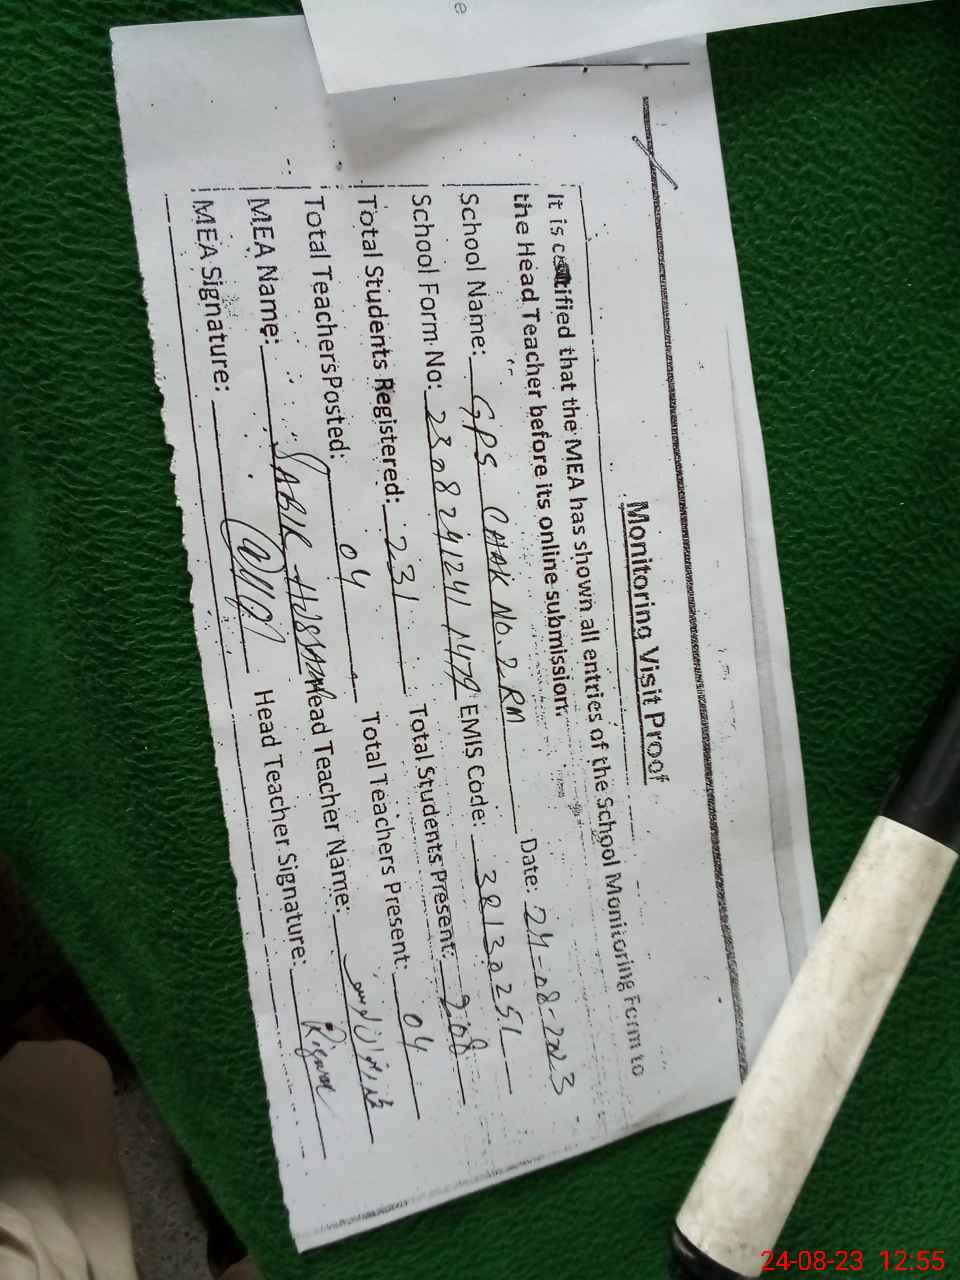 e
Monitoring Visit Proof
It is certified that the MEA has shown all entries of the School Monitoring Form to
the Head Teacher before its online submission.
School Name: GPS CHAK NO. 2 RM Date: 24-08-2023
School Form No: 2308241241 1479 EMIS Code: 38130251
Total Students Registered: 231 Total Students Present: 208
Total Teachers Posted: 04 Total Teachers Present: 04
MEA Name: SABIR HUSSAIN Head Teacher Name:
MEA Signature: Head Teacher Signature:
24-08-23 12:55